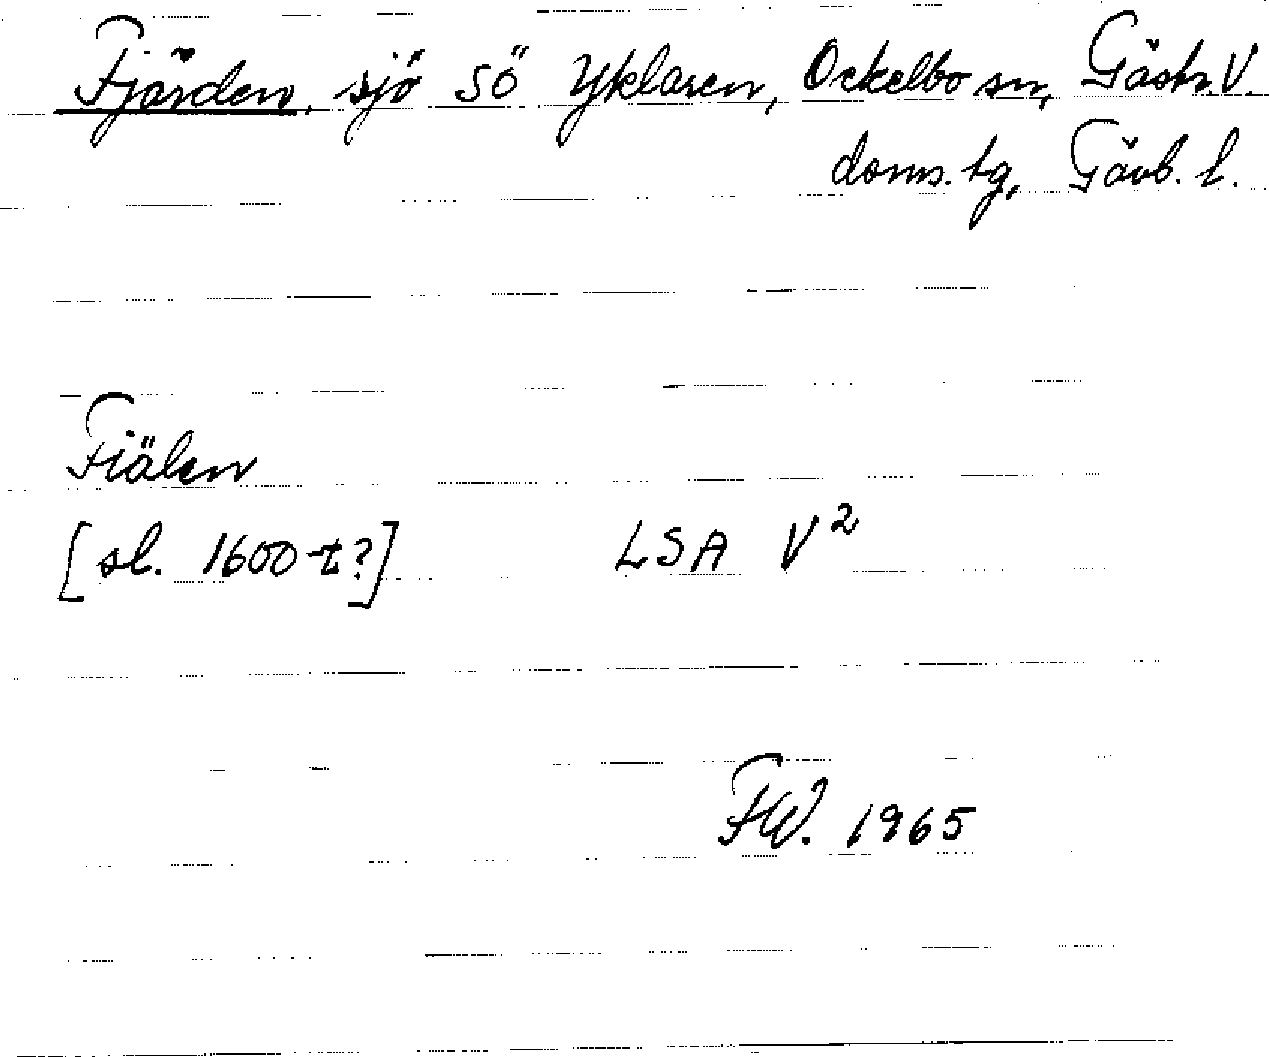 Fjärden, sjö SÖ Yklaren, Ockelbo sn, Gästr. V.
doms.tg, Gävb. l.
Fiälen
[sl. 1600-t?] LSA V²
FW. 1965